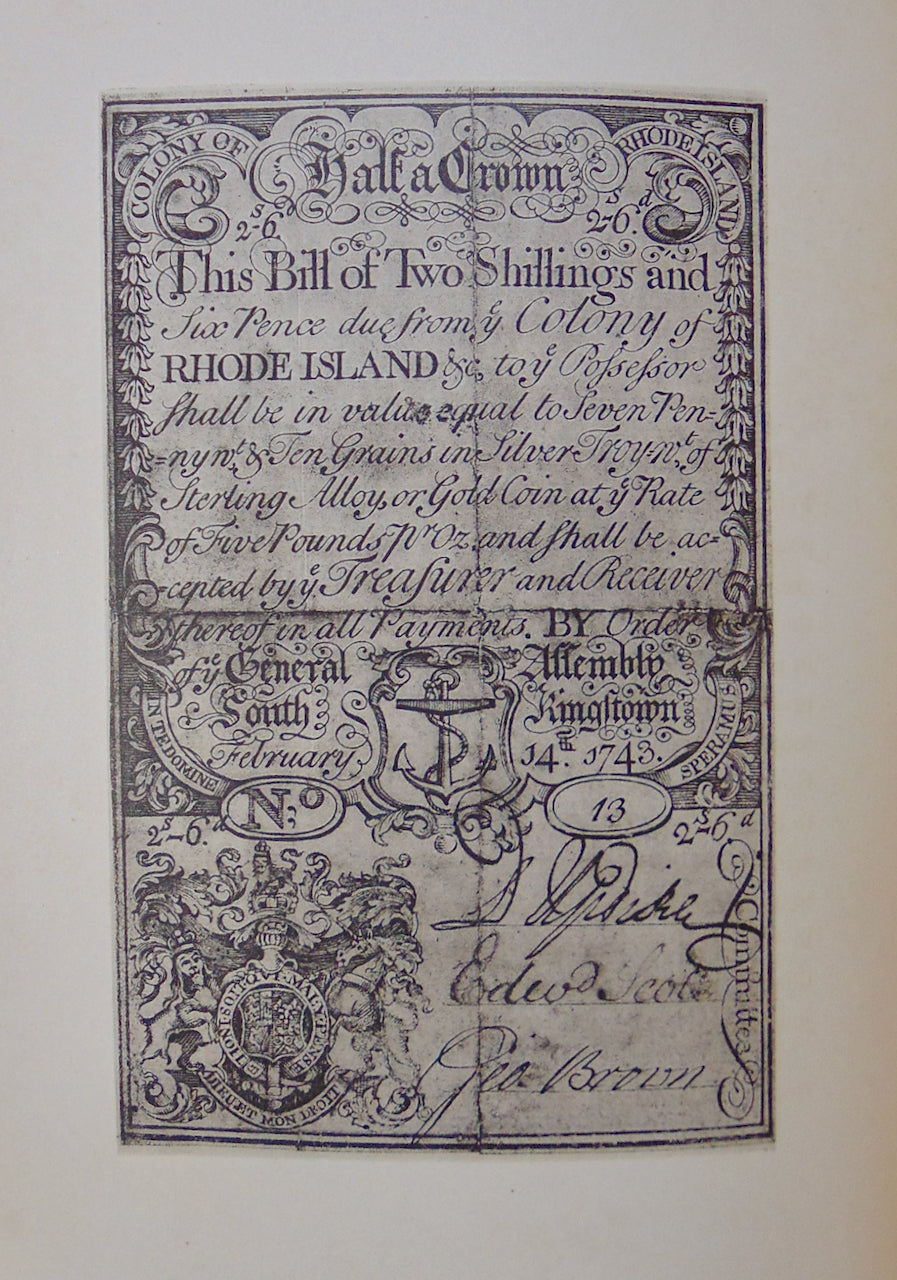 COLONY OF
RHODE ISLAND
Half a Crown
2s-6d
2s-6d.
This Bill of Two Shillings and
Six Pence due from yͤ Colony of
RHODE ISLAND &c, to yͤ Poſseſsor
ſhall be in value equal to Seven Pen=
=nywt. & Ten Grains in Silver Troy-wt. of
Sterling Alloy, or Gold Coin at yͤ Rate
of Five Pounds Pr Oz. and ſhall be ac=
=cepted by yͤ. Treaſurer and Receiver
thereof in all Payments. BY Order
of yͤ General Aſſembly
South Kingſtown
February 14th. 1743.
IN TE DOMINE
SPERAMUS
No 13
2s-6d.
2s-6d
Edwd Scott
Geo Brown
Committee
HONI SOIT QUI MAL Y PENSE
DIEU ET MON DROIT